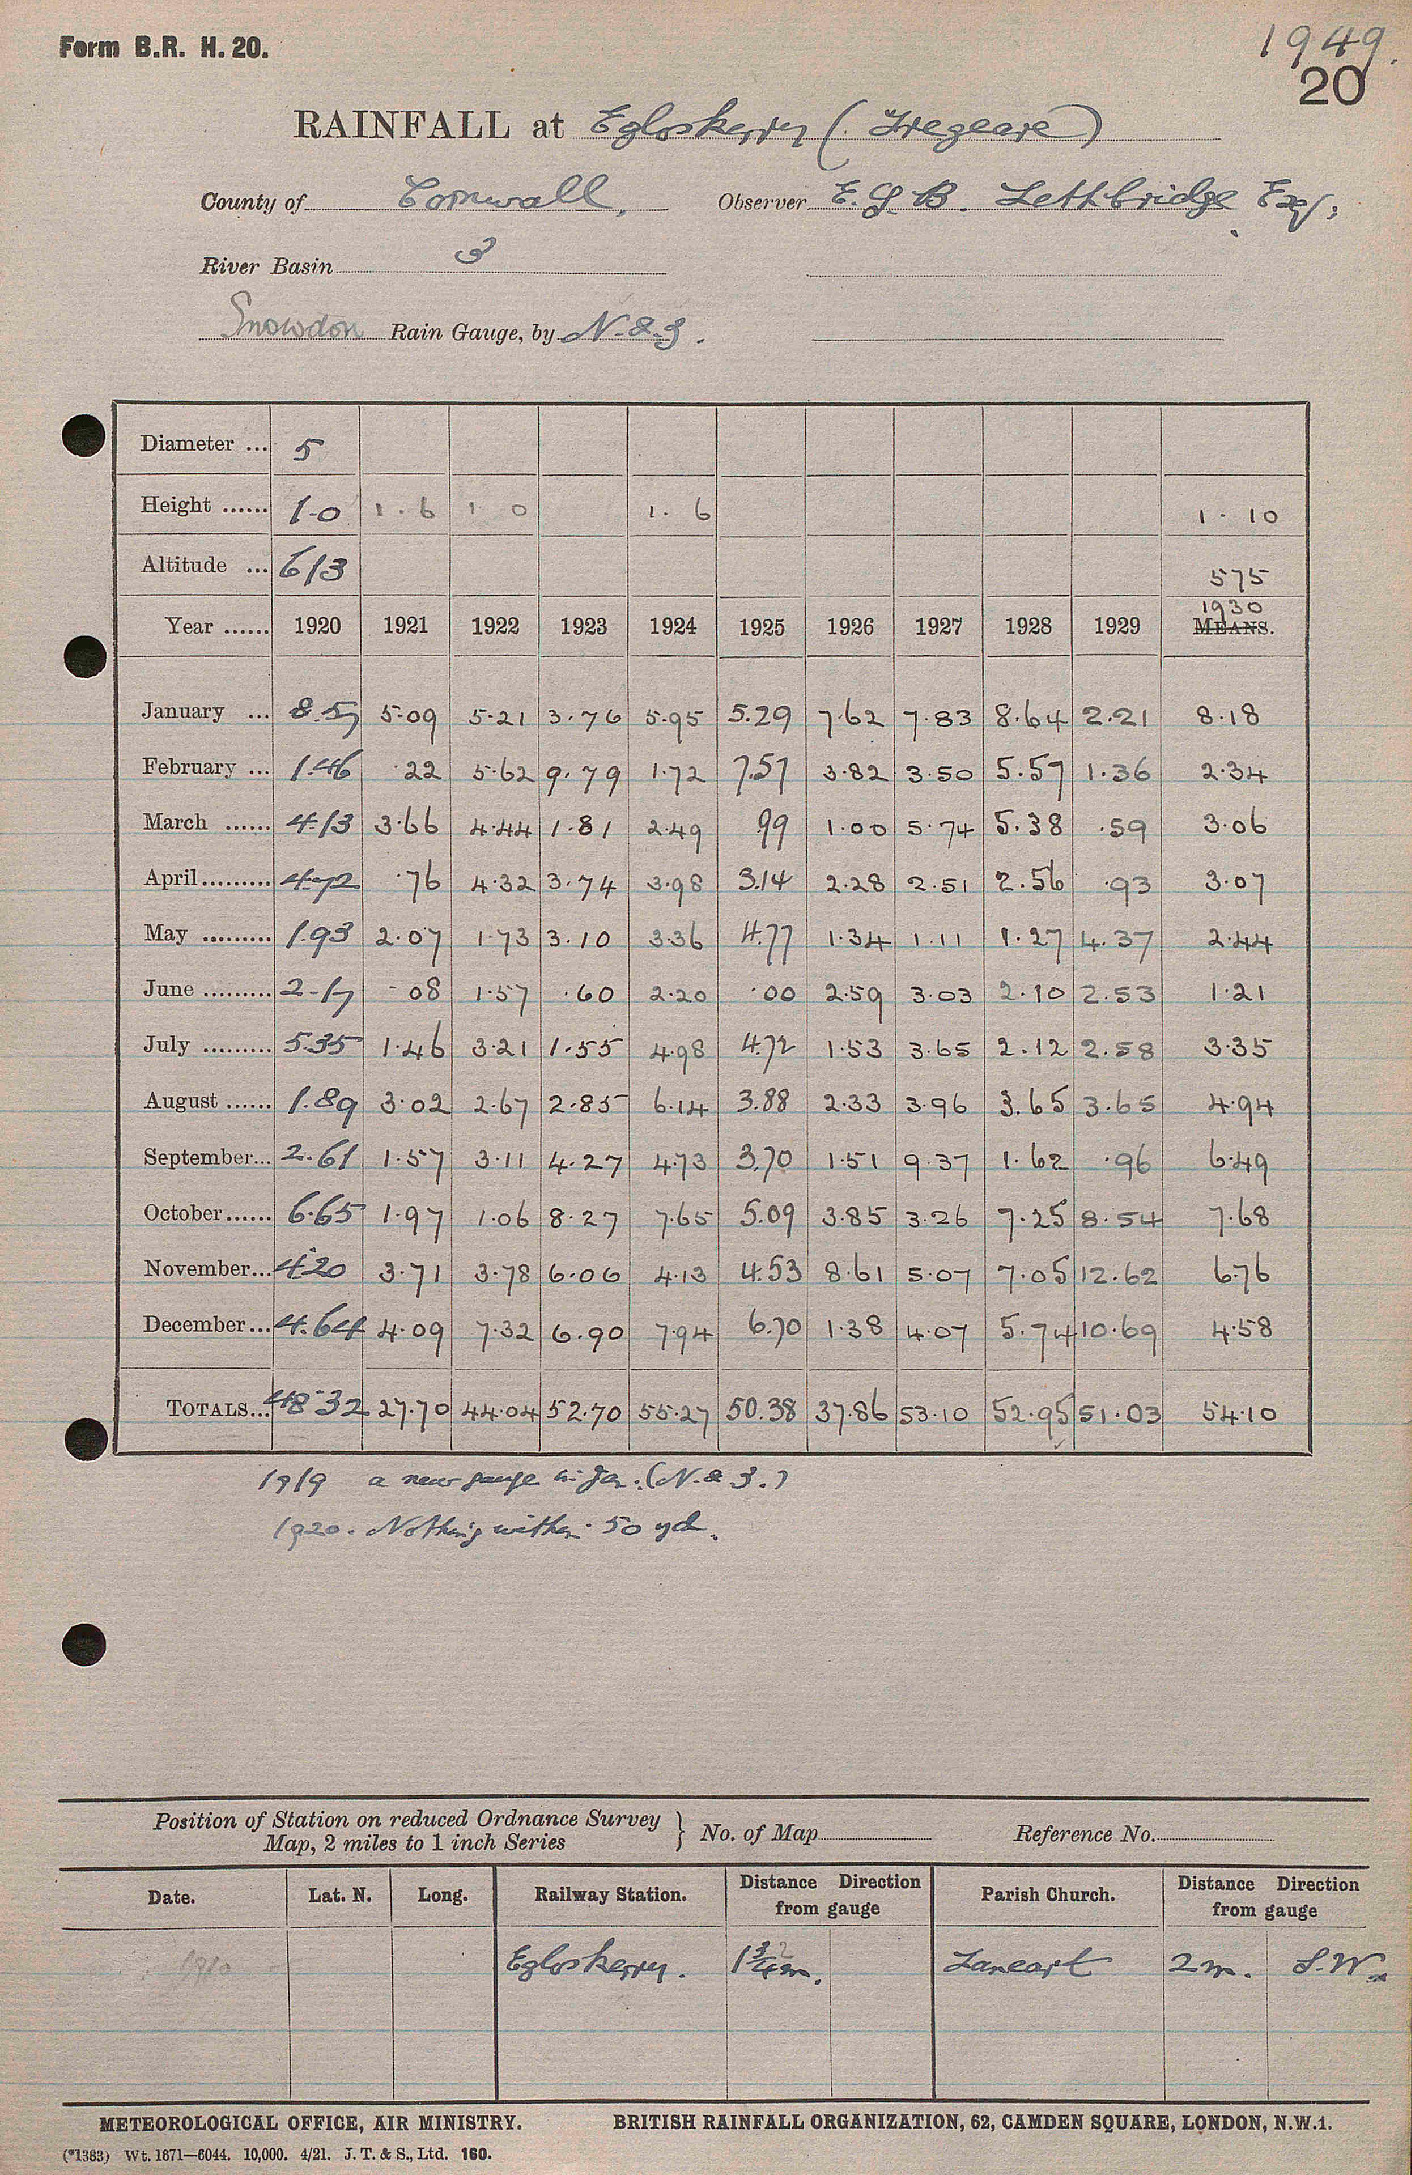 Form B.R. H. 20.
1949.
20
RAINFALL at Egloskerry (Tregeare)
County of Cornwall, Observer E. G. B. Lethbridge Esq,
River Basin 3
Snowdon Rain Gauge, by N & Z.
Diameter ... 5
Height ...... 1-0 1.6 1 0 1. 6 1 - 10
Altitude ... 613 575
1930
Year ...... 1920 1921 1922 1923 1924 1925 1926 1927 1928 1929 MEANS.
January ... 8.57 5.09 5.21 3.76 5.95 5.29 7.62 7.83 8.64 2.21 8.18
February ... 1.46 .22 5.62 9.79 1.72 7.57 3.82 3.50 5.57 1.36 2.34
March ...... 4.13 3.66 4.44 1.81 2.49 .99 1.00 5.74 5.38 .59 3.06
April ......... 4.72 .76 4.32 3.74 3.98 3.14 2.28 2.51 2.56 .93 3.07
May ......... 1.93 2.07 1.73 3.10 3.36 4.77 1.34 1.11 1.27 4.37 2.44
June ......... 2.17 .08 1.57 .60 2.20 .00 2.59 3.03 2.10 2.53 1.21
July ......... 5.35 1.46 3.21 1.55 4.98 4.72 1.53 3.65 2.12 2.58 3.35
August ...... 1.89 3.02 2.67 2.85 6.14 3.88 2.33 3.96 3.65 3.65 4.94
September... 2.61 1.57 3.11 4.27 4.73 3.70 1.51 9.37 1.62 .96 6.49
October...... 6.65 1.97 1.06 8.27 7.65 5.09 3.85 3.26 7.25 8.54 7.68
November... 4.20 3.71 3.78 6.06 4.13 4.53 8.61 5.07 7.05 12.62 6.76
December... 4.64 4.09 7.32 6.90 7.94 6.70 1.38 4.07 5.74 10.69 4.58
TOTALS... 48.32 27.70 44.04 52.70 55.27 50.38 37.86 53.10 52.95 51.03 54.10
1919 a new gauge in Jan. (N. & Z.)
1920. Nothing within 50 yd.
Position of Station on reduced Ordnance Survey
Map, 2 miles to 1 inch Series } No. of Map Reference No.
Date. Lat. N. Long. Railway Station. Distance Direction from gauge Parish Church. Distance Direction from gauge
1910 Egloskerry. 1 3/4 m. 2 Laneast 2 m. S.W.
METEOROLOGICAL OFFICE, AIR MINISTRY. BRITISH RAINFALL ORGANIZATION, 62, CAMDEN SQUARE, LONDON, N.W.1.
(*1383) Wt. 1871—6044. 10,000. 4/21. J. T. & S., Ltd. 160.